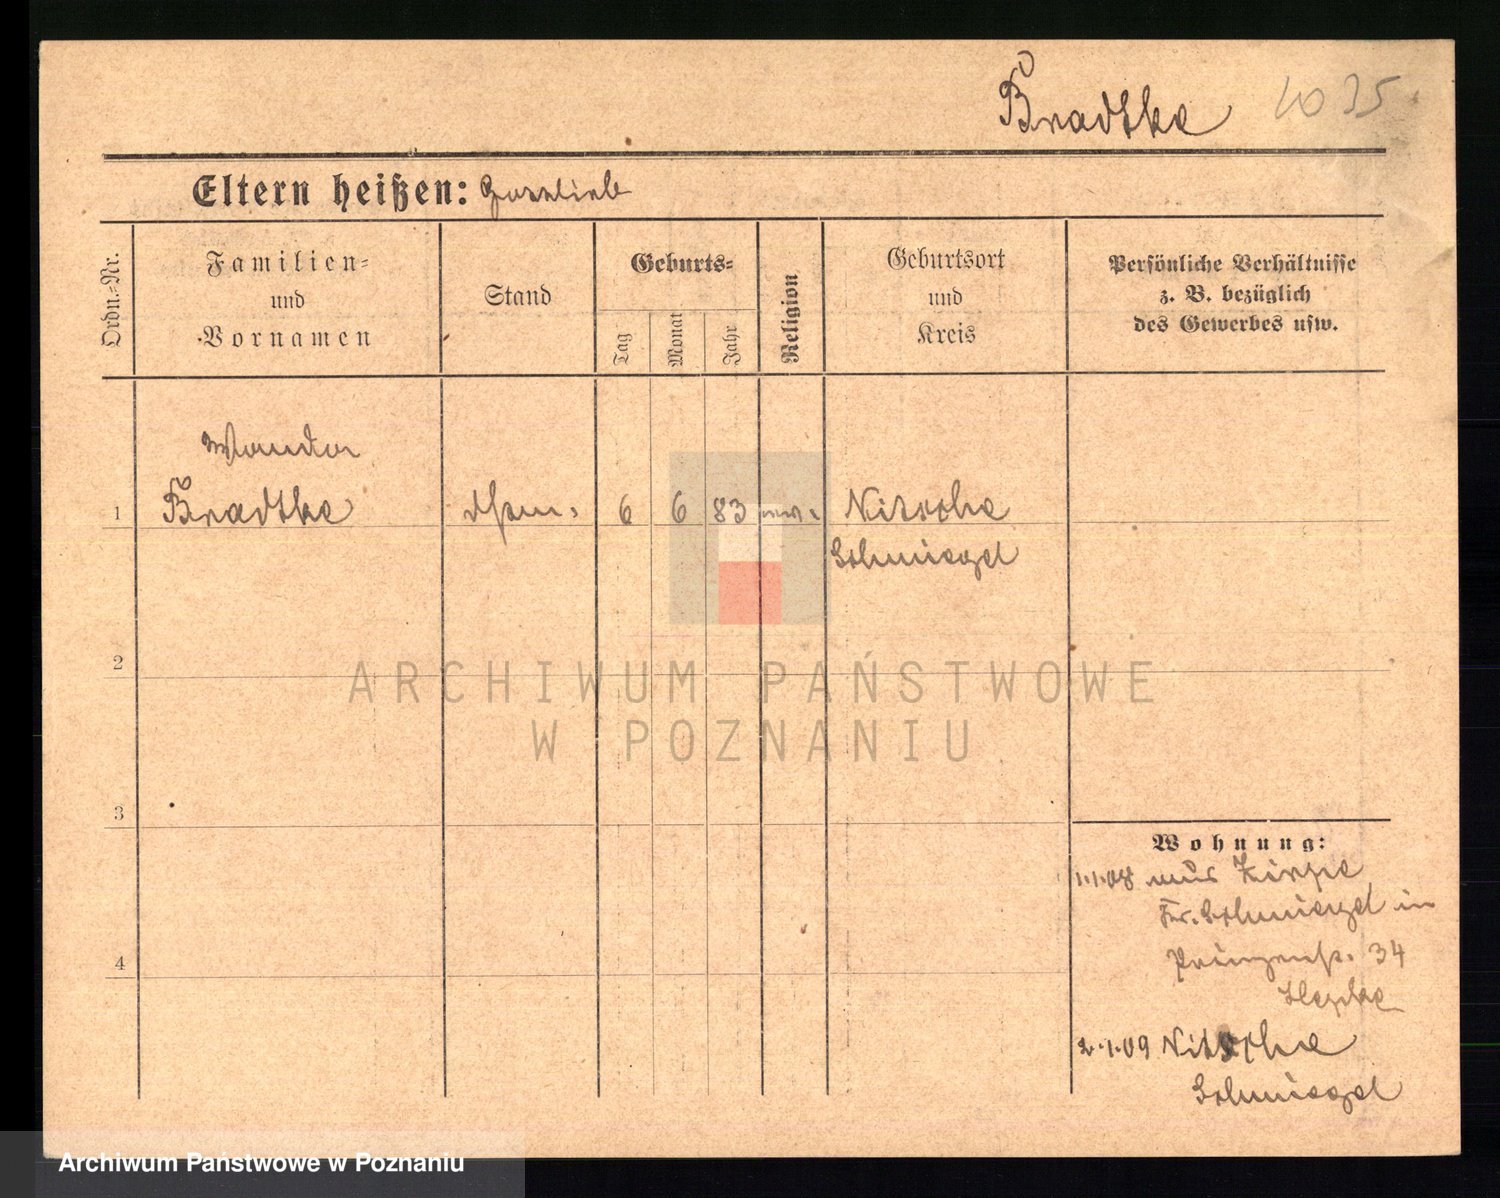 Bradtke 1035
Eltern heißen: Gottlieb
Ordn.-Nr.
Familien-
und
Vornamen
Stand
Geburts-
Tag
Monat
Jahr
Religion
Geburtsort
und
Kreis
Persönliche Verhältnisse
z. B. bezüglich
des Gewerbes usw.
Wanda
1 Bradtke 6 6 83 Nitsche
Schmiegel
2
ARCHIWUM PAŃSTWOWE
W POZNANIU
3
Wohnung:
1.1.08 aus
Kr. Schmiegel in
4
Prinzenstr. 34
2.1.09 Nitsche
Schmiegel
Archiwum Państwowe w Poznaniu